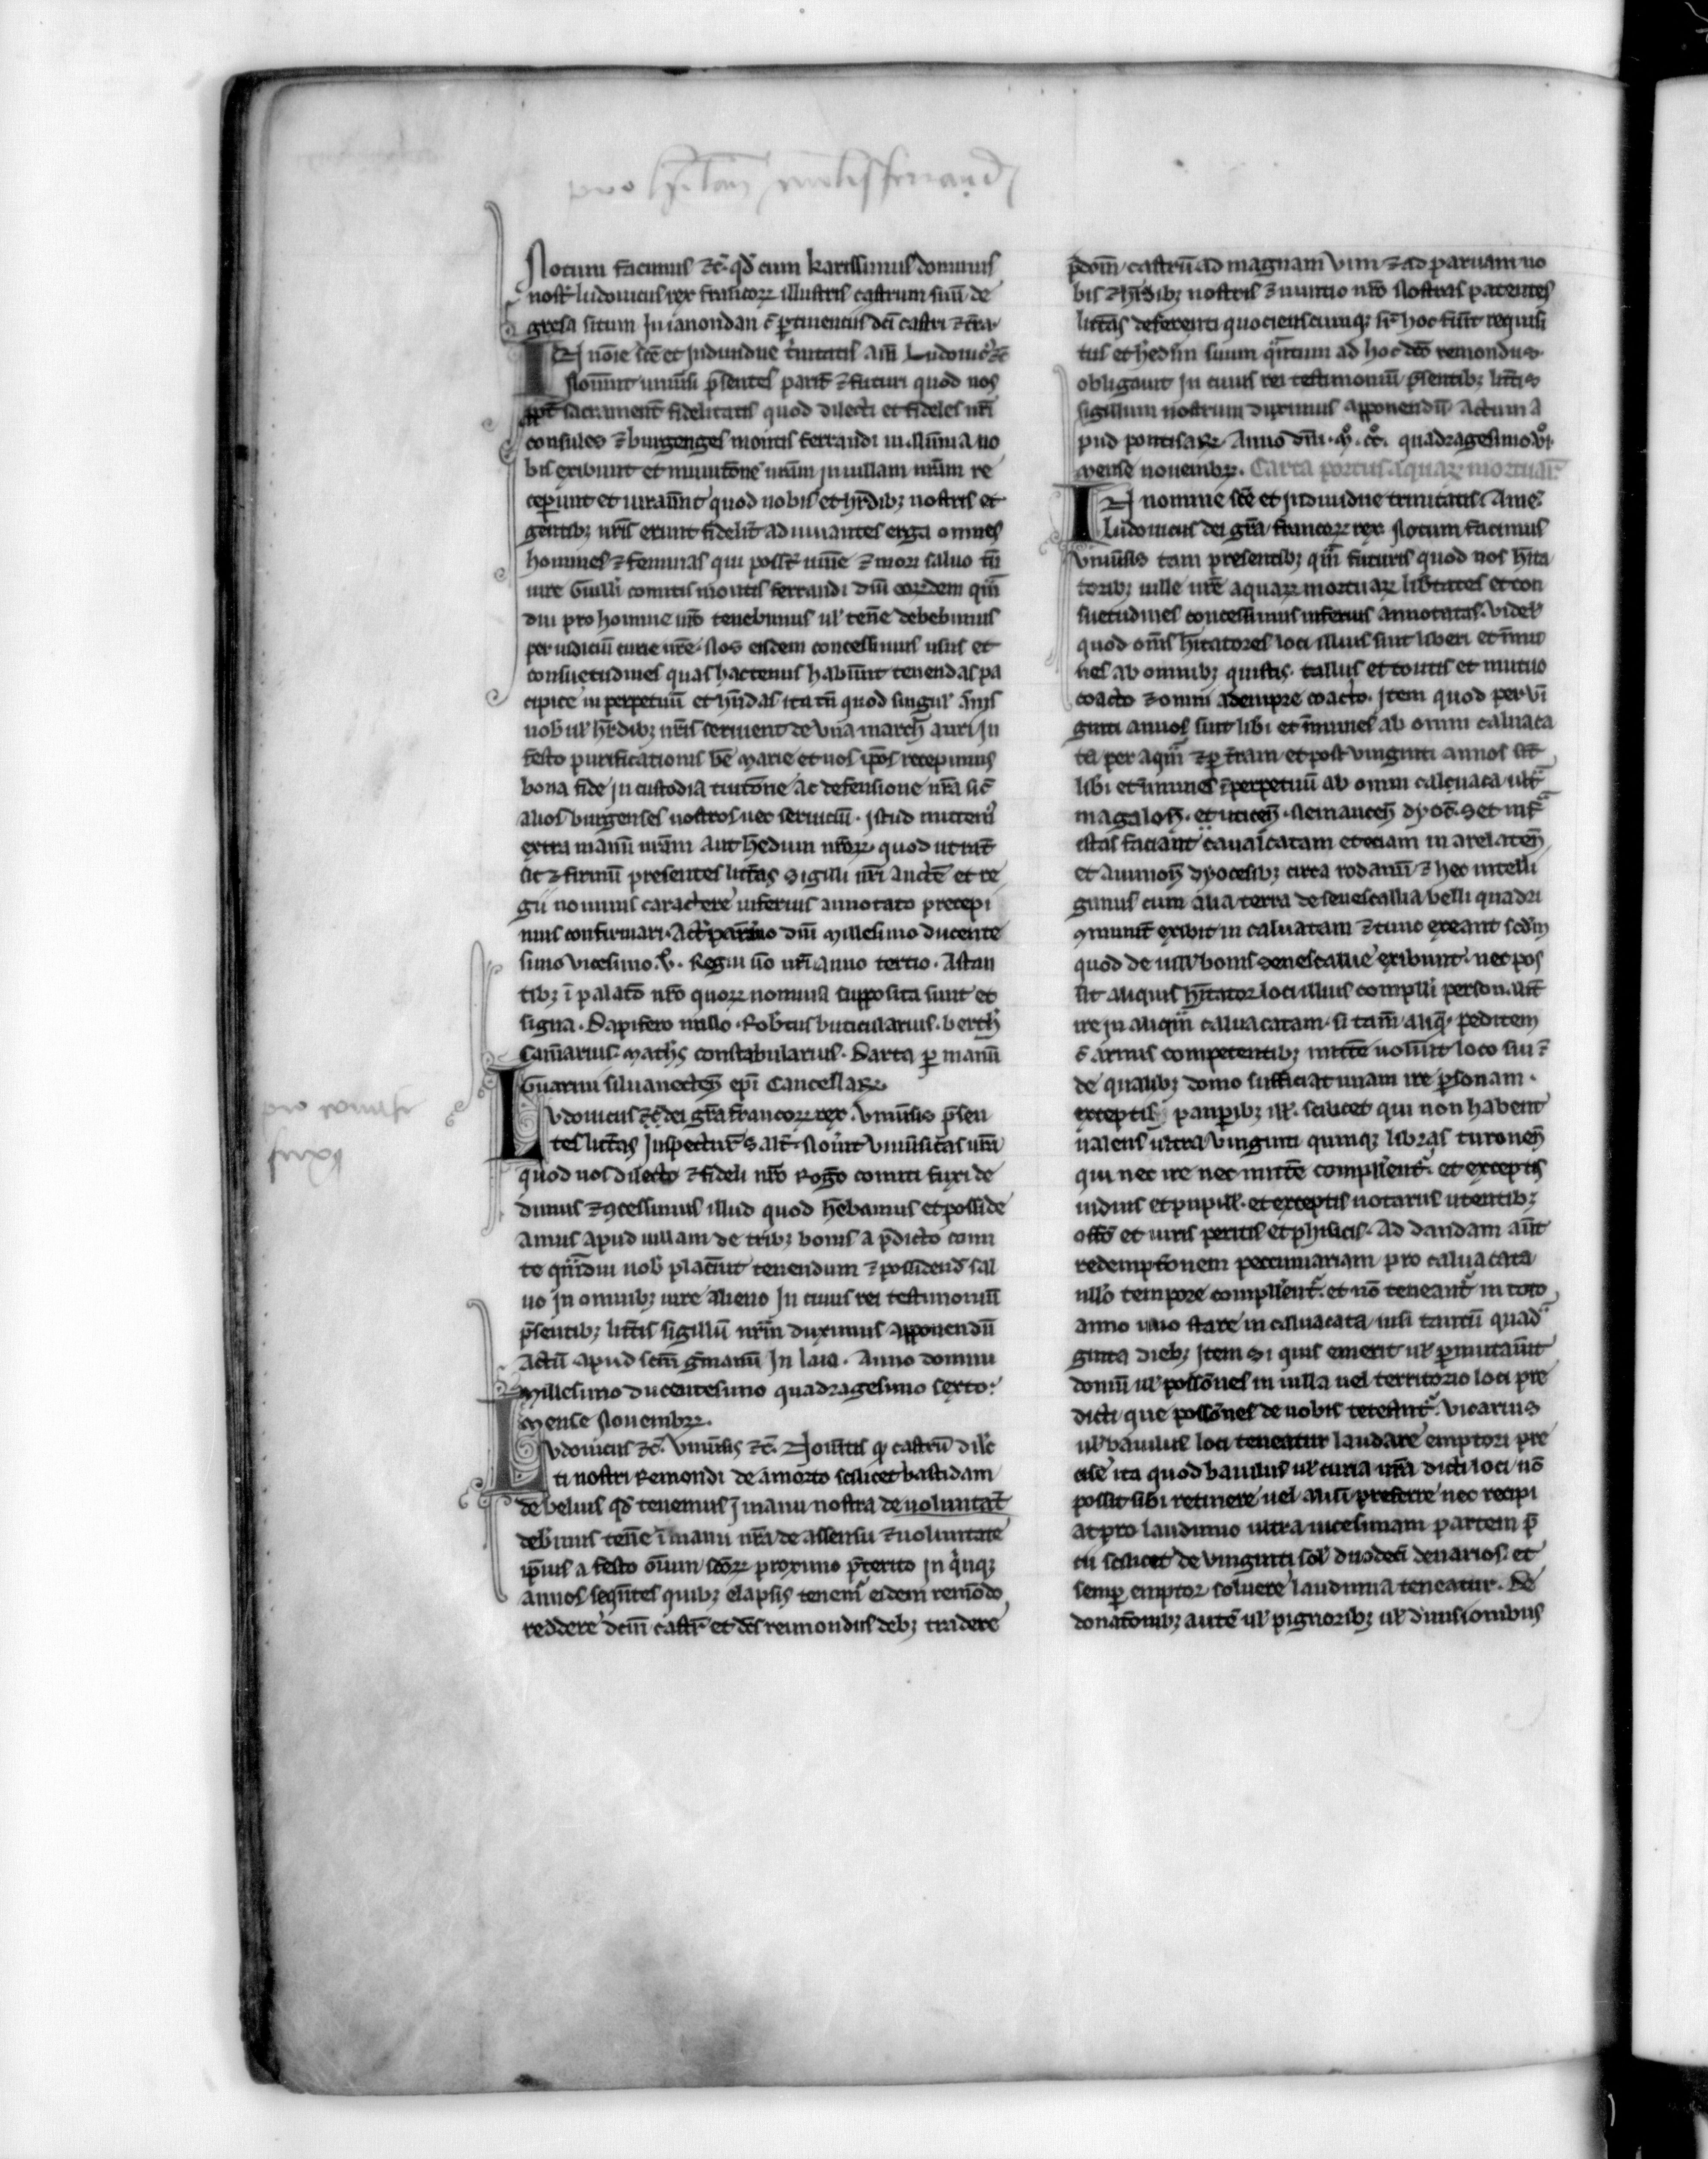 Notum facimus ⁊c̄. qd̄ cum karissimus dominus
nost̄ ludouicus rex francoꝝ illustris castrum suū de
gresa situm In ianondan c̄ ꝑtinentiis dc̄i castri ⁊ t̄ra.
IN noīe sc̄e et Indiuidue t̄nitatis am̄. Ludouic᷒ ⁊c̄
Nou̅int uniu̅si p̄sentes parit̄ ⁊ futuri quod nos
ꝓpt̄ sacrament̄ fidelitatis quod dilecti et fideles nr̄i
consules ⁊ burgenses montis ferrandi
bis exibunt et
ceperunt et iurau̅nt quod nobis et hr̄dibꝫ nostris et
gentibꝫ nr̄is erunt fidelit̄ adiuuantes erga omnes
homines ⁊ feminas qui poss̄t uiu̅e ⁊ mori saluo tn̄
iure Guill̄i comitis montis ferrandi dn̄i eoꝝdem qm̄
diu pro homine nr̄o tenebimus ul̓ ten̄e debebimus
per iudiciū curie nr̄e. Nos eisdem concessimus usus et
consuetudines quas hactenus habu̅int tenendas pa
cifice in perpetuū et hn̄das ita tn̄ quod singul̓ ānis
nob̄ ul̓ hr̄dibꝫ nr̄is seruient de una march̄ auri In
festo purificationis bē Marie et nos ip̄os recepimus
bona fide In custodia tuitōne ac defensione nr̄a sic̄
alios burgenses nostros nec seruiciū. Istud mittem᷒
extra manū nr̄am aut hr̄edum nr̄oꝝ. quod ut rat̄
sit ⁊ firmū presentes litt̄as sigilli nr̄i auct̄e et re
gii nominis caractere inferius annotato precepi
mus confirmari. Act̄ par̄. anno dn̄i Millesimo ducente
simo vicesimo. v᷒. Regni ū̓o nr̄i anno tertio. Astan
tibꝫ ī palatō nr̄o quoꝝ nomina supposita sunt et
signa. Dapifero nullo. Rob̄tus buticularius. berth̄
Cam̄arius. Math̄s constabularius. Data ꝑ manū
Guarini siluanecten̄ epī Cancellaꝝ.
Ludouicus ⁊c̄ dei gr̄a francoꝝ rex. Vniu̅sis p̄sen
tes litt̄as Inspectur̄ salt̄. Nou̅it vniu̅sitas ur̄a
quod nos dilecto ⁊ fideli nr̄o Rog̅o comiti fuxi de
dimus ⁊ ꝯcessimus illud quod hēbamus et posside
amus apud uillam de tribꝫ bonis a p̄dicto comi
te qm̄diu nob̄ placu̅it tenendum ⁊ possidend̄ sal
uo In omnibꝫ iure alieno In cuius rei testimoniū
p̄sentibꝫ litt̄is sigillū nr̄m duximus apponendū
Actū apud sc̄m g̅manū In laia. Anno domini
Millesimo ducentesimo quadragesimo sexto.
Mense Nouembꝝ.
Ludouicus ⁊c̄. Vniu̅sis ⁊c̄. Nou̅itis qͩ castrū dil̓c
ti nostri Remondi de amorto scilicet bastidam
de belius qd̄ tenemus I manu nostra de uoluntat̄
deb̄imus ten̄e ī manu nr̄a de assensu ⁊ uoluntate
ip̄ius a festo oīum sc̄oꝝ proximo p̄terito In qͥnqꝫ
annos seqn̄tes quibꝫ elapsis tenem᷒ eidem remōdo
reddere dc̄m castr̄ et dc̄s reimondus debꝫ tradere
p̄dcm̄ castrū ad magnam vim ⁊ ad paruam no
bis ⁊ hr̄dibꝫ nostris ⁊ nuntio nr̄o nostras patentes
litt̄as deferenti quocienscumqꝫ sr̄ hoc fu̅it requisi
tus et hr̄edem suum qͣntum ad hoc dc̄s remondus
obligauit In cuius rei testimoniū p̄sentibꝫ litt̄is
sigillum nostrum duximus apponendū Actum a
pud pontisaꝝ. Anno dn̄i. Mͦ. ccͦ. quadragesimo vͦi.
Mense nouembꝝ. Carta portus aquaꝝ mortuaꝝ
IN nomine sc̄e et Indiuidue trinitatis. Ame̅.
Ludouicus dei gr̄a francoꝝ rex Notum facimus
vniu̅sis tam presentibꝫ qm̄ futuris quod nos hīta
toribꝫ uille nr̄e aquaꝝ mortuaꝝ lib̄tates et con
suetudines concessimus inferius annotatas. Videl̓
quod om̄s hītatores loci illius sint liberi et īmu
nes ab omnibꝫ quistis. talliis et toutis et mutuo
coacto ⁊ omni adempre coacto. Item quod per vi
ginti annos sint libi et īmunes ab omni caluaca
ta per aqͣm ⁊ ꝑ t̄ram et post vinginti annos sīt
libi et īmunes ī perpetuū ab omni caluaca ult̄ᷓ
magalon̄. et uticen̄. Nemaucen̄ dyoc̄. Set infᷓ
istas faciant caualcatam et eciam in arelaten̄
et auinion̄ dyocesibꝫ circa rodanū ⁊ hec intelli
gimus cum alia terra de senescallia belli quadri
ꝯmunit̄ exibit in caluatam ⁊ tunc exeant scd̄m
quod de uill̓ bonis senescallie exibunt. nec pos
sit aliquis hītator loci illius compelli person̄alit̄
ire In aliqͣm caluacatam. si tam̄ aliq̄. peditem
c̄ armis competentibꝫ mitt̄e uolu̅it loco sui ⁊
de qualibꝫ domo sufficiat unam ire ꝑsonam.
exceptis pauꝑibꝫ ill̓. scilicet qui non habent
ualens ultra vinginti quinqꝫ libras turonen̄
qui nec ire nec mitt̄e compellent᷑. et exceptis
uiduis et pupill̓. et exceptis notariis utentibꝫ
offō et iuris peritis et phisicis. Ad dandam aūt
redemptōnem peccuniariam pro caluacata
nllō tempore compellent᷑. et nō teneant᷑ in toto
anno uno stare in caluacata nisi tantū quadᷓ
ginta diebꝫ Item Si quis emerit ul̓ ꝑmutau̅it
domū ul̓ possōnes in uilla uel territorio loci pre
dicti que possōnes de nobis teneant᷑. Vicarius
ul̓ bauilus loci teneatur laudare emptori pre
cise ita quod bauilus ul̓ curia nr̄a dicti loci nō
possit sibi retinere uel alii preferre nec recipi
at pro laudimio ultra uicesimam partem p̄
cii scilicet de vinginti sol̓ duodeci denarios. et
semꝑ emptor soluere laudimia teneatur. De
donatōnibꝫ autē ul̓ pignoribꝫ ul̓ diuisionibus